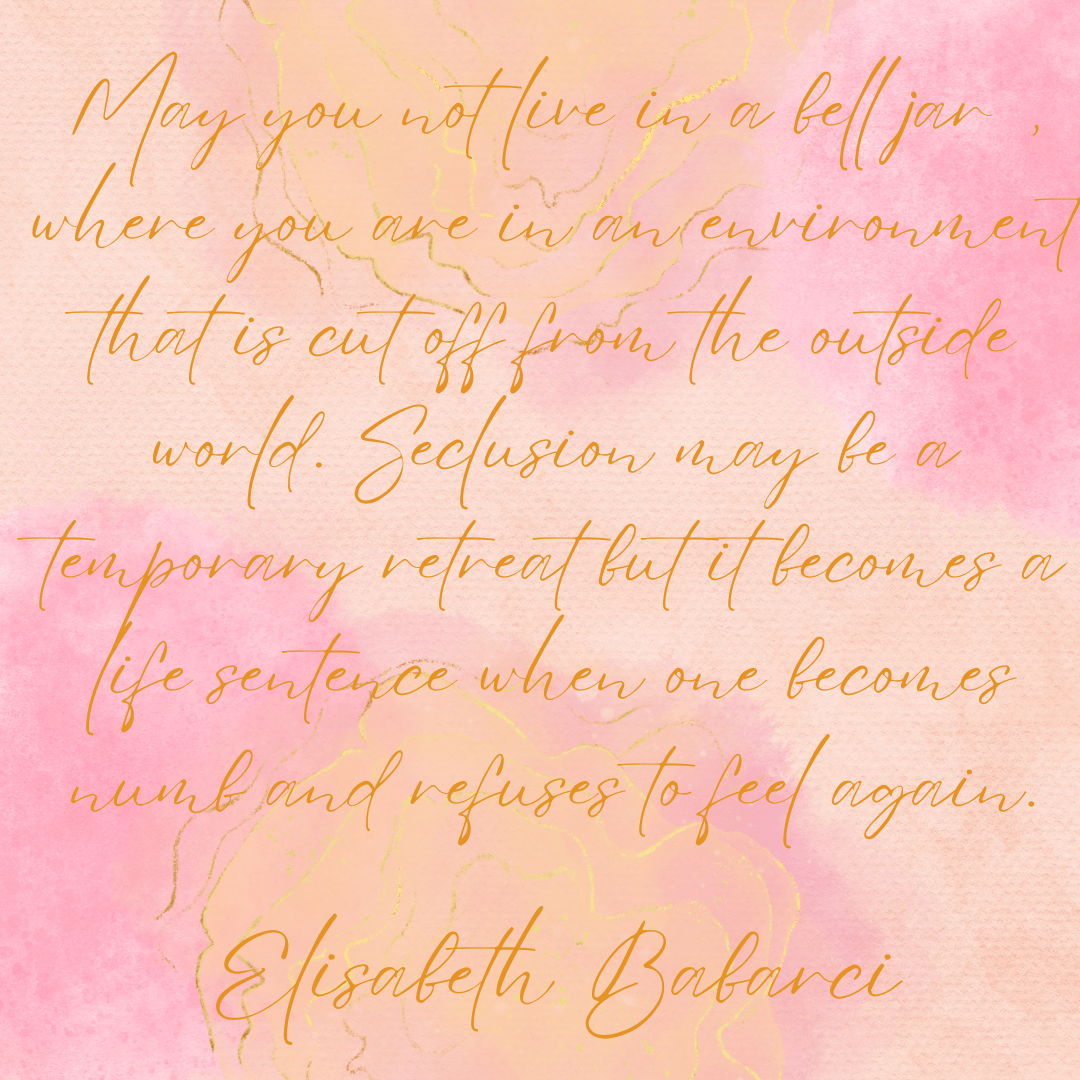 May you not live in a bell jar ,
where you are in an environment
that is cut off from the outside
world. Seclusion may be a
temporary retreat but it becomes a
life sentence when one becomes
numb and refuses to feel again.
Elisabeth Babarci